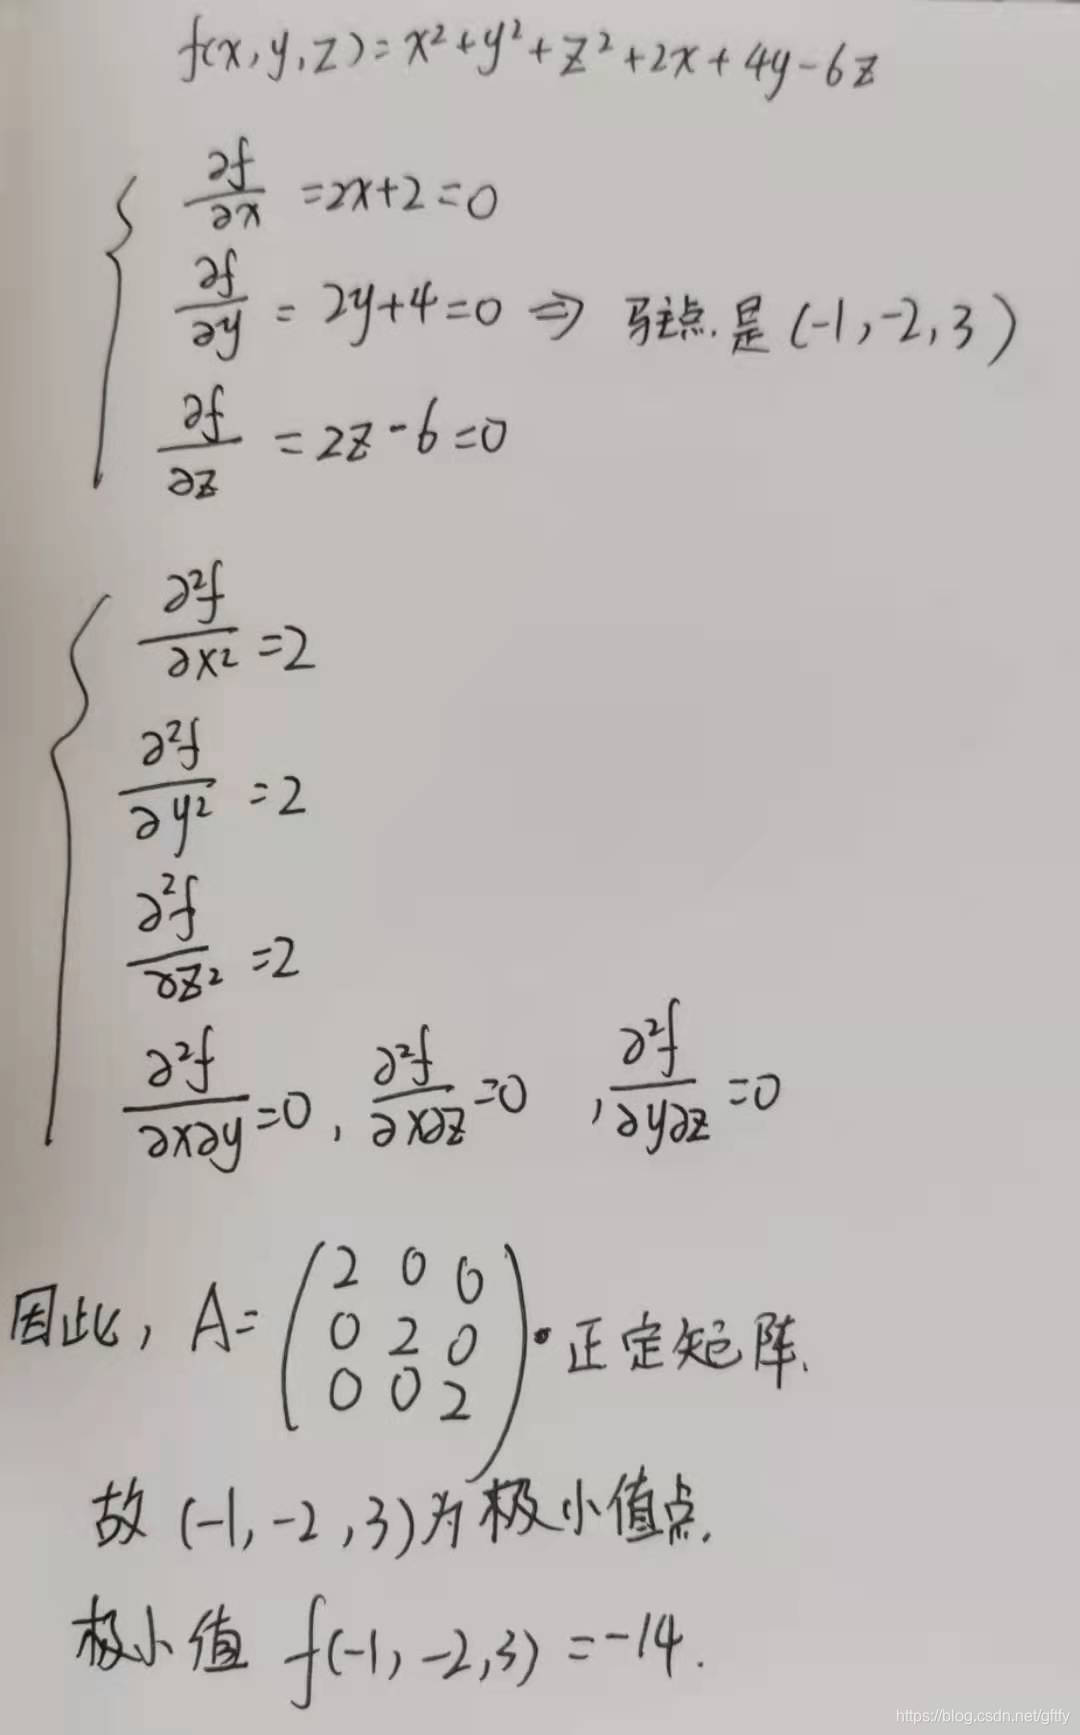 f(x,y,z)=x²+y²+z²+2x+4y-6z
∂f/∂x =2x+2=0
∂f/∂y = 2y+4=0 ⇒ 驻点是(-1,-2,3)
∂f/∂z =2z-6=0
∂²f/∂x² =2
∂²f/∂y² =2
∂²f/∂z² =2
∂²f/∂x∂y=0, ∂²f/∂x∂z=0 ,∂²f/∂y∂z=0
因此, A= (2 0 0
0 2 0
0 0 2) . 正定矩阵.
故(-1,-2,3)为极小值点.
极小值 f(-1,-2,3)=-14.
https://blog.csdn.net/gftfy